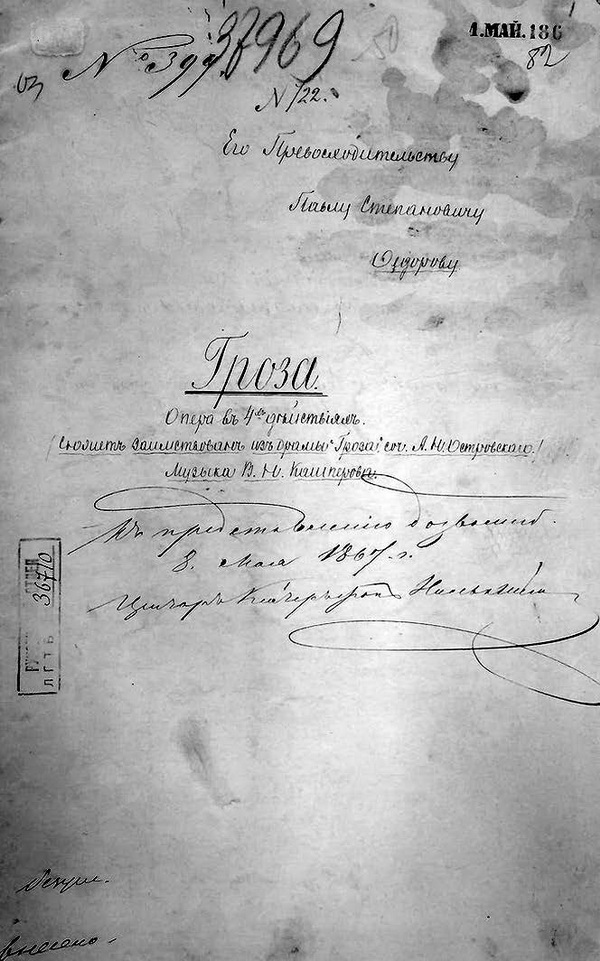 № 399.
37969
1.МАЙ.186
82
N 122.
Его Превосходительству
Павлу Степановичу
Ѳедорову
Гроза.
Опера въ 4хъ дѣйствіяхъ.
(Сюжетъ заимствованъ изъ драмы "Гроза", соч. А. Н. Островскаго.)
Музыка В. Н. Кашперова.
Къ представленію дозволено.
8. мая 1867. г.
Цензоръ
36710
ЛГТБ